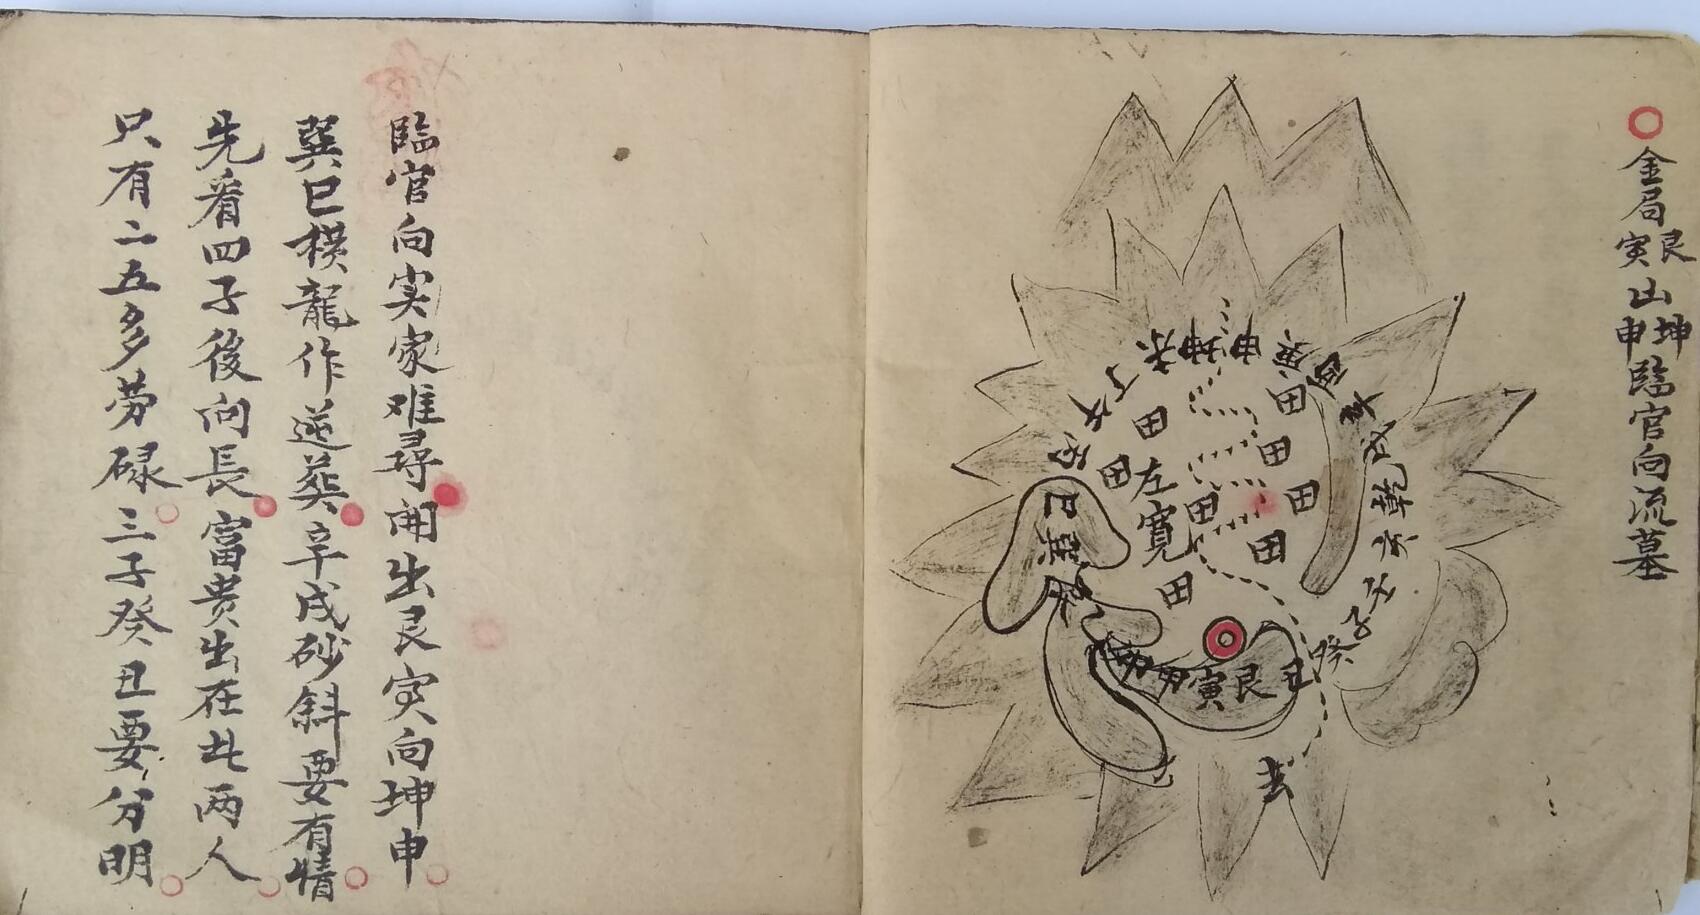 金局艮寅山坤申臨官向流墓
未坤申庚酉辛戌乾亥壬子癸丑艮寅甲卯乙辰巽巳丙午丁
田
田
田
田
田
田
田
田
左寬
去
臨官向实家难尋開出艮寅向坤申
巽巳横龍作逆葬辛戌砂斜要有情
先看四子後向長富贵出在此两人
只有二五多劳碌三子癸丑要分明